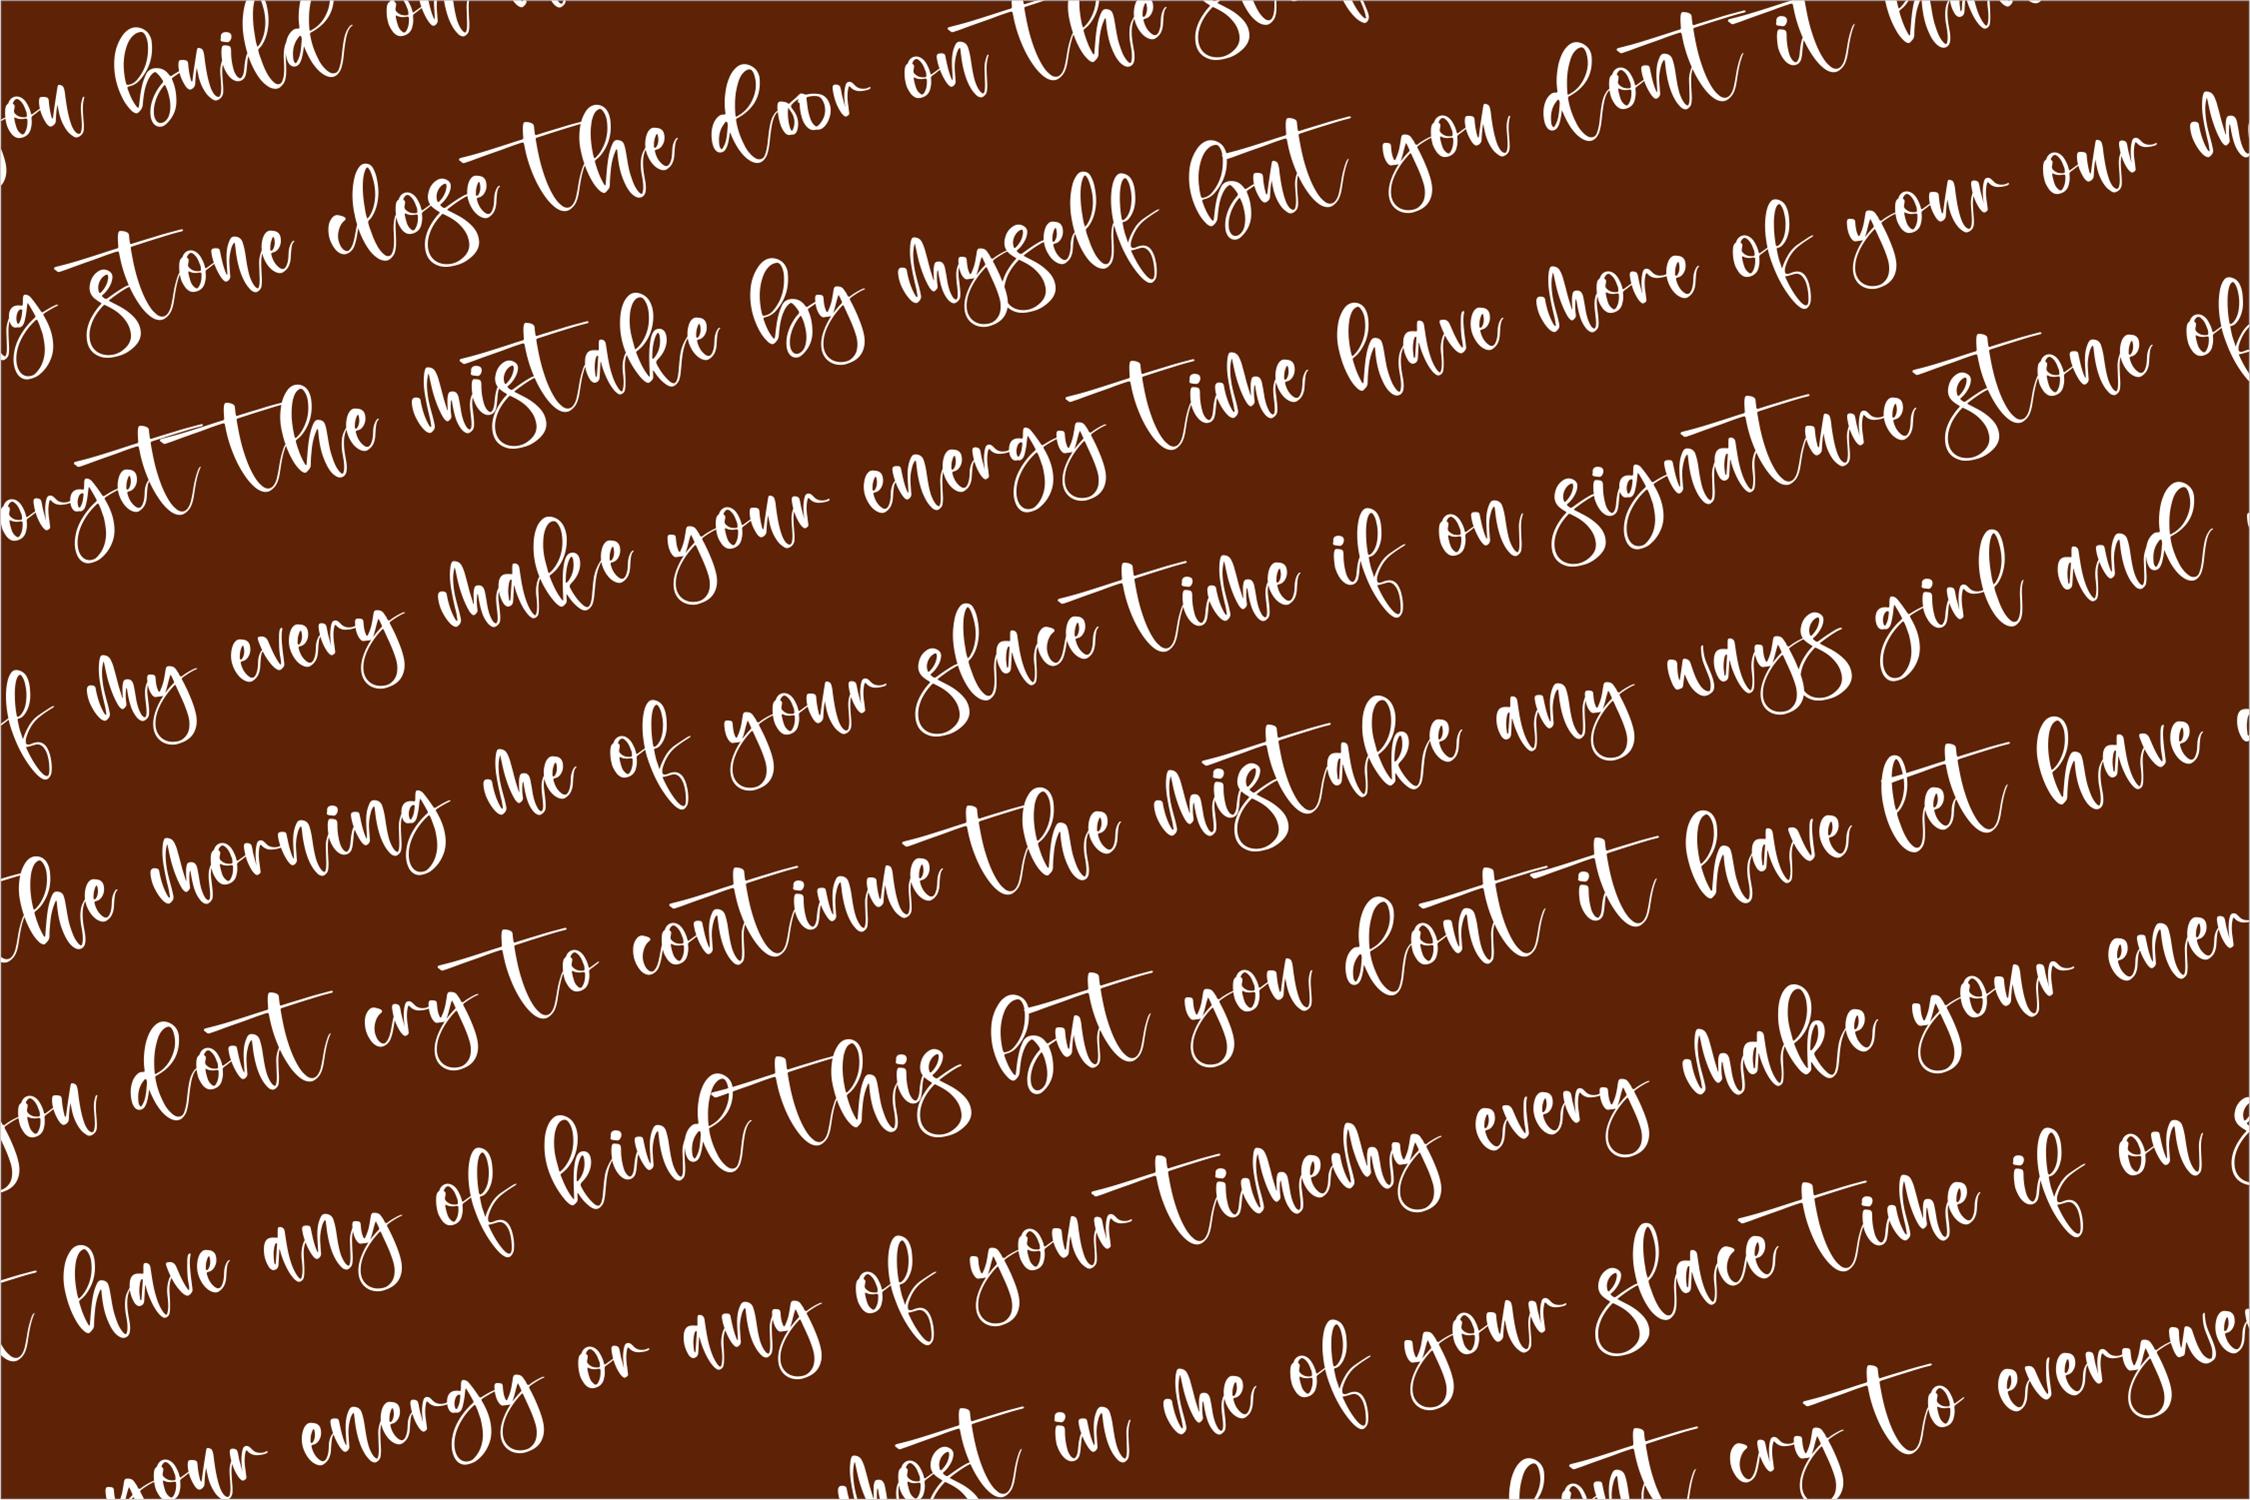 on build on
g stone close the door on the
orget the mistake by myself but you dont it
f my every make your energy time have more of your our m
the morning me of your slace time if on signature stone of
you dont cry to continue the mistake any ways girl and
have any of kind this but you dont it have let have
your energy or any of your timemy every make your ener
most in me of your slace time if on
dont cry to everywe